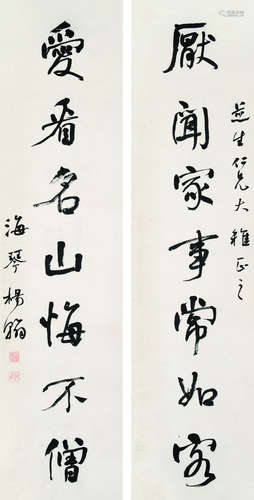 生仁兄大雅正之
厭聞家事常如客
愛看名山悔不僧
海琴楊翰